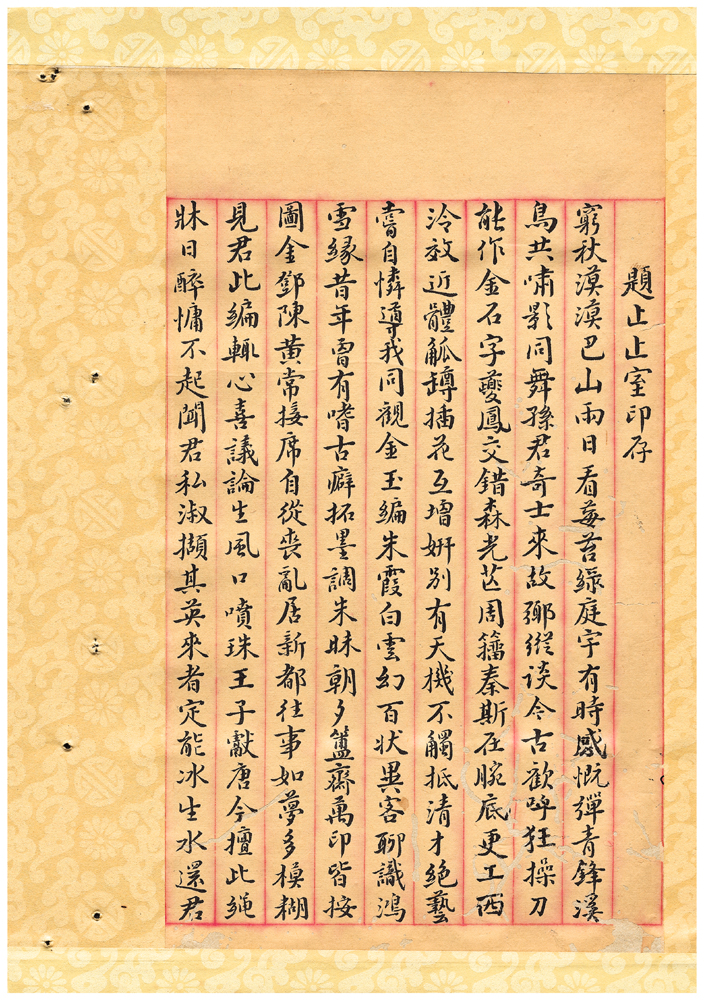 題止止室印存
窮秋漠漠巴山雨日看莓苔綠庭宇有時感慨彈青鋒溪
鳥共嘯影同舞孫君奇士來故鄉縱谈今古歡呼狂操刀
能作金石字夔鳳交錯森光芒周籀秦斯在腕底更工西
泠效近體觚罇插花互增妍別有天機不觸抵清才絕藝
嘗自憐導我同觀金玉編朱霞白雲幻百狀異客聊識鴻
雪緣昔年曾有嗜古癖拓墨調朱昧朝夕簠齋萬印皆按
圖金鄧陳黃常接席自從喪亂居新都往事如夢多模糊
見君此編輒心喜議論生風口噴珠王子獻唐今擅此繩
牀日醉慵不起聞君私淑擷其英來者定能冰生水還君